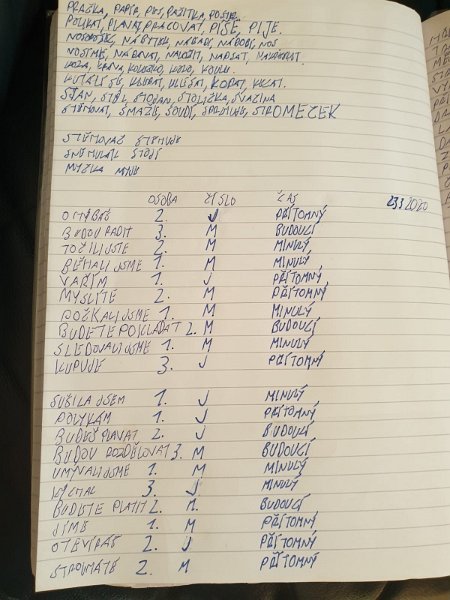 PRAČKA, PAPÍR, PES, PAŽITKA, POSTEL
POLIKAT, PLAVAT, PRACOVAT, PÍŠE, PIJE.
NOSOROŽEC, NÁBYTEK, NÁŘADÍ, NÁDOBÍ, NOS
NOSÍME, NABÍRAT, NALOŽIT, NADÁVAT,
KOZA, KRÁVA, KOLEČKO, KOLO,
KOPAT, KÁCET.
STAN, STŮL, STOPAN, STOLIČKA, SVAČINA
SMAŽÍ, SOUDÍ, STROMEČEK
STĚHOVÁK STĚHUJE
STOJÍ
MYČKA MYJE
OSOBA ČÍSLO ČAS 23.3 2020
OHÝBÁŠ 2. J PŘÍTOMNÝ
BUDOU RADIT 3. M BUDOUCÍ
TOČILI JSTE 2. M MINULÝ
BĚHALI JSME 1. M MINULÝ
VAŘÍM 1. J PŘÍTOMNÝ
MYSLÍTE 2. M PŘÍTOMNÝ
POČKALI JSME 1. M MINULÝ
BUDETE POKLÁDAT 2. M BUDOUCÍ
SLEDOVALI JSME 1. M MINULÝ
KUPUJE 3. J PŘÍTOMNÝ
SUŠILA JSEM 1. J MINULÝ
POLYKÁM 1. J PŘÍTOMNÝ
BUDEŠ PLAVAT 2. J BUDOUCÍ
BUDOU ROZDĚLOVAT 3. M BUDOUCÍ
UMÝVALI JSME 1. M MINULÝ
KÝCHAL 3. J MINULÝ
BUDETE PLATIT 2. M. BUDOUCÍ
JÍME 1. M PŘÍTOMNÝ
OTEVÍRÁŠ 2. J PŘÍTOMNÝ
STROUHÁTE 2. M PŘÍTOMNÝ